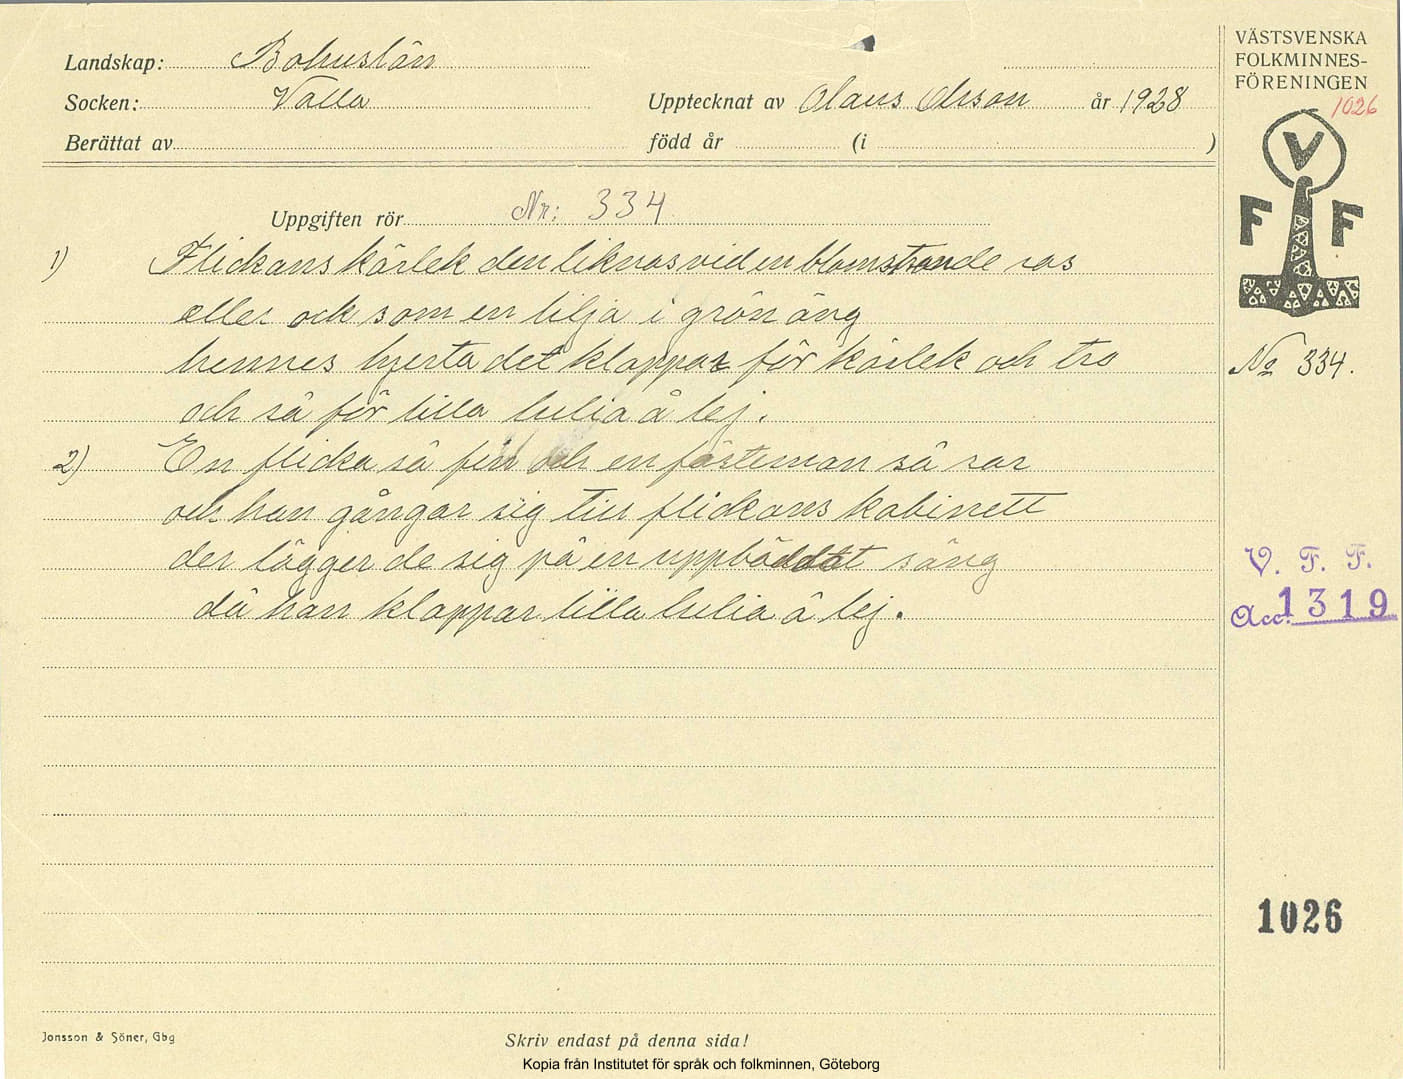 Landskap: Bohuslän
Socken: Valla
Upptecknat av Olaus Olsson år 1928
Berättat av
född år (i )
VÄSTSVENSKA
FOLKMINNES-
FÖRENINGEN
1026
V
F F
Uppgiften rör Nr: 334
1) Flickans kärlek den liknas vid en blomstrande ros
eller ock som en lilja i grön äng
hennes hjerta det klappar för kärlek och tro
och så för lilla lulia å lej.
2) En flicka så fin och en fästeman så rar
och han gångar sig till flickans kabinett
der lägger de sig på en uppbäddat säng
då han klappar lilla lulia å lej.
No 334.
V. F. F.
Acc. 1319
1026
Jonsson & Söner, Gbg
Skriv endast på denna sida!
Kopia från Institutet för språk och folkminnen, Göteborg